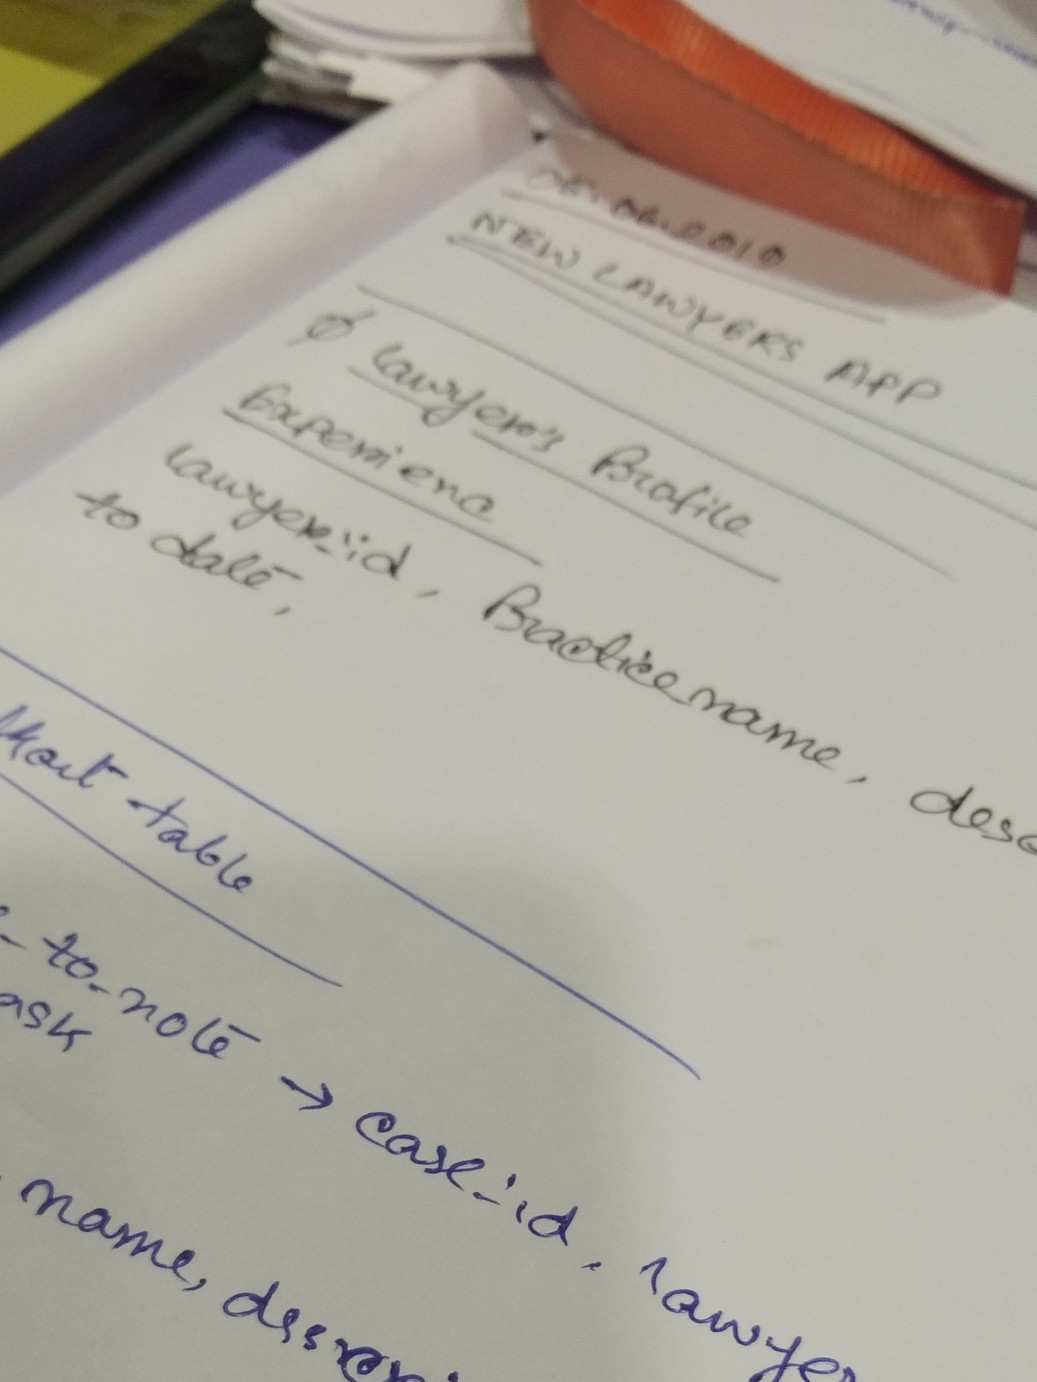 NEW LAWYERS APP
Lawyer's Profile
Experienc
Lawyer-id, Practice name, desc
to date,
table
to-note → case-id, lawyer
ask
name, descrip